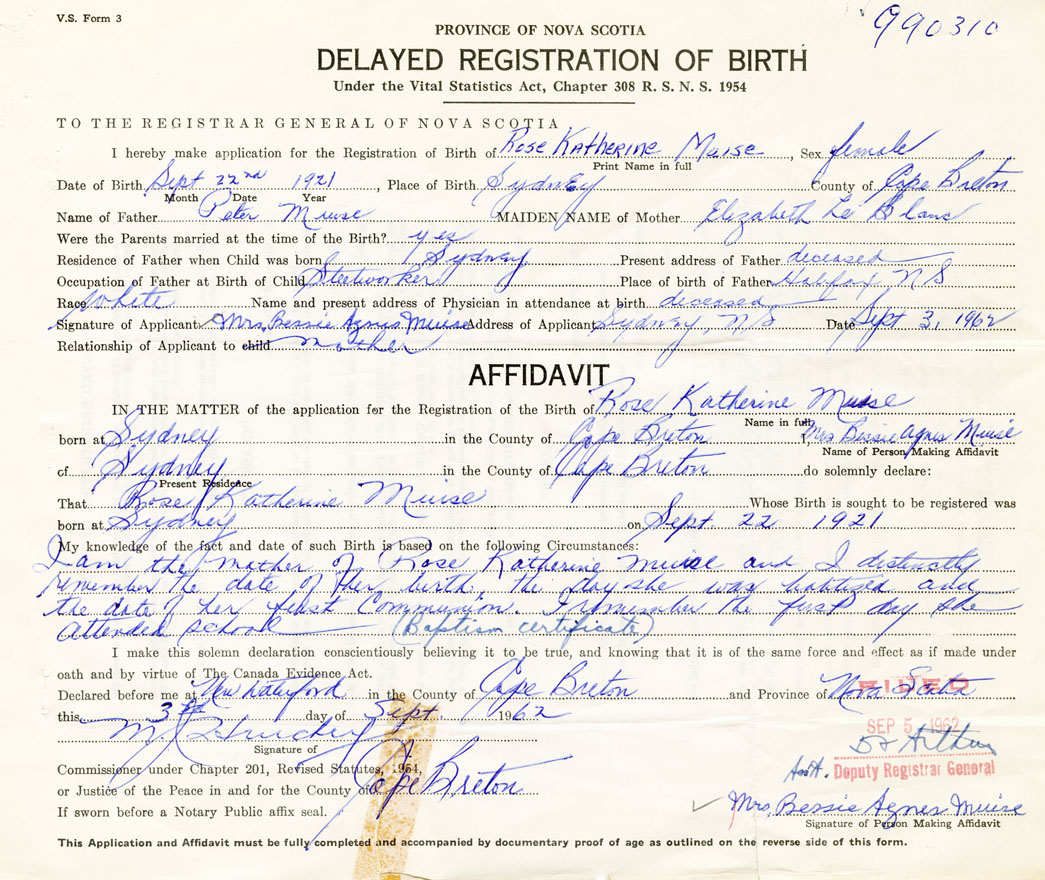 V.S. Form 3
990310
PROVINCE OF NOVA SCOTIA
DELAYED REGISTRATION OF BIRTH
Under the Vital Statistics Act, Chapter 308 R. S. N. S. 1954
TO THE REGISTRAR GENERAL OF NOVA SCOTIA
I hereby make application for the Registration of Birth of Rose Katherine Muise, Sex female
Print Name in full
Date of Birth Sept 22nd 1921, Place of Birth Sydney County of Cape Breton
Month Date Year
Name of Father Peter Muise MAIDEN NAME of Mother Elizabeth Le Blanc
Were the Parents married at the time of the Birth? yes
Residence of Father when Child was born Sydney Present address of Father deceased
Occupation of Father at Birth of Child Steelworker Place of birth of Father Halifax, N S
Race White Name and present address of Physician in attendance at birth deceased
Signature of Applicant Mrs. Bessie Agnes Muise Address of Applicant Sydney, N/S Date Sept 3, 1962
Relationship of Applicant to child mother
AFFIDAVIT
IN THE MATTER of the application for the Registration of the Birth of Rose Katherine Muise
Name in full
born at Sydney in the County of Cape Breton I, Mrs Bessie Agnes Muise
Name of Person Making Affidavit
of Sydney in the County of Cape Breton do solemnly declare:
Present Residence
That Rose Katherine Muise Whose Birth is sought to be registered was
born at Sydney on Sept. 22 1921
My knowledge of the fact and date of such Birth is based on the following Circumstances:
I am the mother of Rose Katherine Muise and I distinctly
remember the date of her birth, the day she was baptised and
the date of her first Communion. I remember the first day she
attended school (Baptism certificate)
I make this solemn declaration conscientiously believing it to be true, and knowing that it is of the same force and effect as if made under
oath and by virtue of The Canada Evidence Act.
Declared before me at New Waterford in the County of Cape Breton and Province of Nova Scotia
FILED
this 3rd day of Sept 1962
SEP 5 1962
Signature of
Asst. Deputy Registrar General
Commissioner under Chapter 201, Revised Statutes, 1954,
or Justice of the Peace in and for the County of Cape Breton
If sworn before a Notary Public affix seal.
Mrs. Bessie Agnes Muise
Signature of Person Making Affidavit
This Application and Affidavit must be fully completed and accompanied by documentary proof of age as outlined on the reverse side of this form.